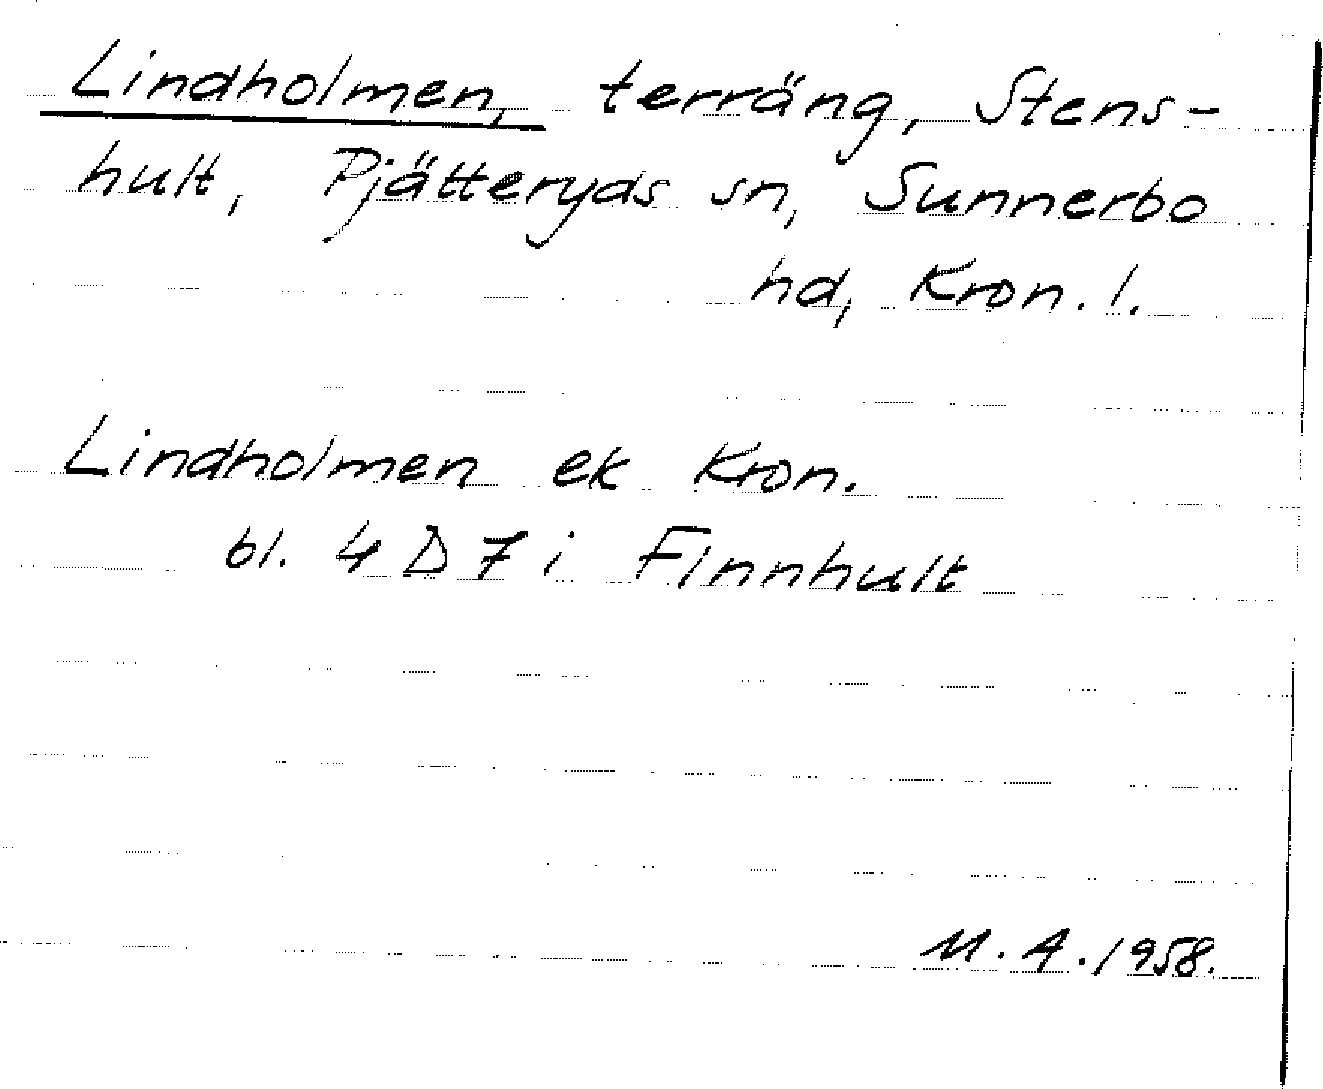 Lindholmen, terräng, Stens-
hult, Pjätteryds sn, Sunnerbo
hd, Kron. l.
Lindholmen ek Kron.
bl. 4 D 7 i Finnhult
M. A. 1958.